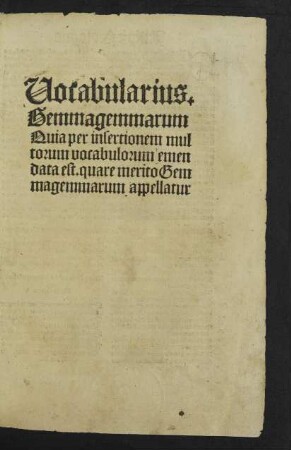 Vocabularius.
Gemmagemmarum
Quia per insertionem mul
torum vocabulorum emen
data est. quare merito Gem
magemmarum appellatur